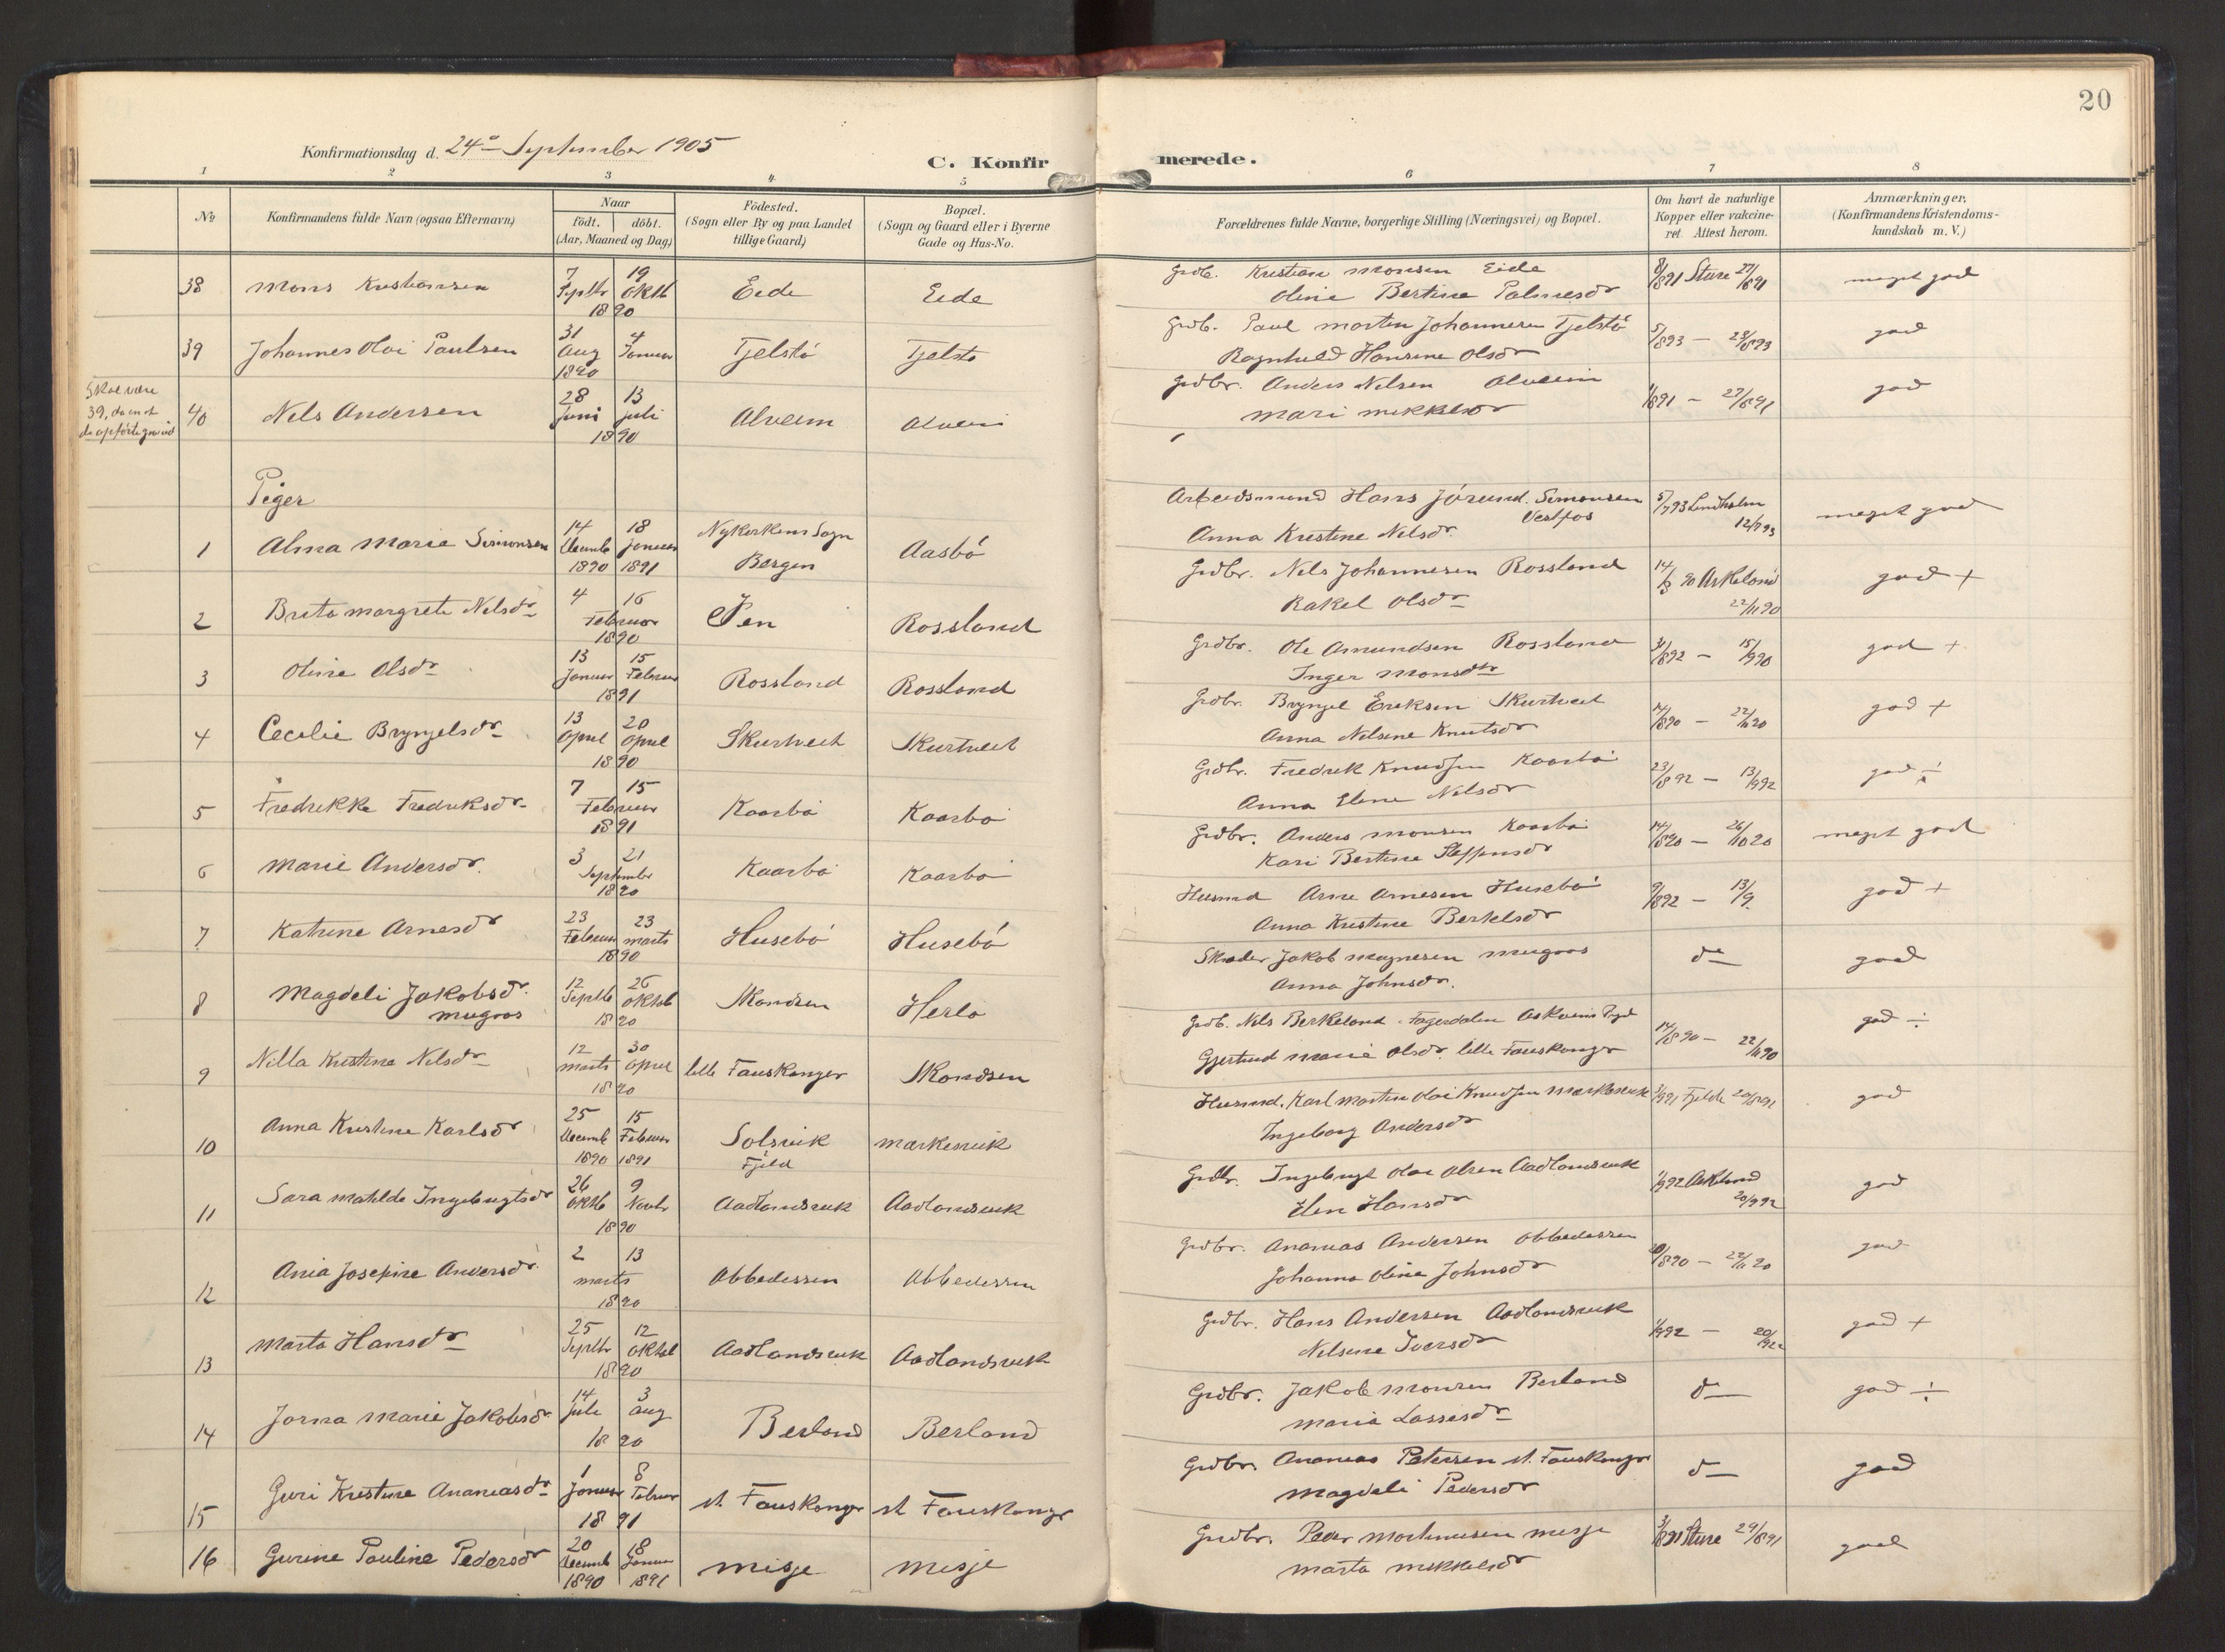 20
Konfirmationsdag d. 24de September 1905
C. Konfirmerede.
1 2 3 4 5 6 7 8
No
Konfirmandens fulde Navn (ogsaa Efternavn)
Naar
födt. döbt.
(Aar, Maaned og Dag)
Födested.
(Sogn eller By og paa Landet
tillige Gaard)
Bopæl.
(Sogn og Gaard eller i Byerne
Gade og Hus-No.
Forældrenes fulde Navne, borgerlige Stilling (Næringsvei) og Bopæl.
Om havt de naturlige
Kopper eller vakcine-
ret Attest herom.
Anmærkninger.
(Konfirmandens Kristendoms-
kundskab m. V.)
38 Mons Kristiansen 7 Septbr 19 Oktb 1890 Eide Eide Grdb. Kristian Monsen Eide
Oline Bertine Palmesdr 8/891 Sture 27/891 meget god
39 Johannes Olai Paulsen 31 Aug 4 Januar 1890 Tjelstö Tjelstö Grdb. Paul Morten Johannesen Tjelstö
Ragnhild Hansine Olsdr 5/893 — 23/893 god
Skal være
39, da en af
de opförte
40 Nels Andersen 28 Juni 13 Juli 1890 Alveim Alveim Grdbr. Anders Nilsen Alveim
Mari Mikkelsdr 1/891 — 27/891 god
Piger
1 Alma Marie Simonsen 14 Decemb 1890 18 Januar 1891 Nykirkens Sogn
Bergen Aasbö Arbeidsmand Hans Jörund. Simonsen
Vestfos
Anna Kristine Nilsdr. 5/793 Lindholm
12/793 meget god
2 Brita Margrete Nelsdr 4 16 Februar 1890 Pen Rossland Grdbr. Nils Johannesen Rossland
Rakel Olsdr 14/8 90 Askeland
22/11 90 god +
3 Oline Olsdr 13 Januar 15 Februar 1891 Rossland Rossland Grdbr. Ole Amundsen Rossland
Inger Monsdtr 31/892 — 15/990 god +
4 Cecilie Bryngelsdr 13 April 20 April 1890 Skurtveit Skurtveit Grdbr. Bryngel Eriksen Skurtveit
Anna Nilsine Knutsdr 14/890 — 22/1190 god +
5 Fredrikke Fredriksdr. 7 15 Februar 1891 Kaarbö Kaarbö Grdbr. Fredrik Knudsen Kaarbö
Anna Elene Nilsdr 23/892 — 13/992 god ÷
6 Marie Andersdr. 3 21 September 1890 Kaarbö Kaarbö Grdbr. Anders Monsen Kaarbö
Kari Bertine Steffensdr 14/890 — 26/1090 meget god
7 Katrine Arnesdr 23 Februar 23 Marts 1890 Husebö Husebö Husmd Arne Arnesen Husebö
Anna Kristine Bertelsdr 9/892 — 13/9. god +
8 Magdeli Jakobsdr.
Mugaas 12 Septb 26 Oktob 1890 Skandsen Herlö Skræder Jakob Magnesen Mugaas
Anna Johnsdr. do god
9 Nilla Kristine Nilsdr 12 Marts 30 April 1890 lille Fauskanger Skandsen Grdb. Nils Berkeland Fagerdalen
Gjertrud Marie Olsdr. lille Fauskanger 14/890 — 22/1190 god ÷
10 Anna Kristine Karlsdr 25 Decemb 1890 15 Februar 1891 Solsvik
Fjeld Markesvik Husmd. Karl Martin Olai Knudsen Markesvik
Ingeborg Andersdr 3/991 Fjelde god
11 Sara Matilde Ingebrigtsdr 26 Oktb 9 Novbr 1890 Aadlandsvik Aadlandsvik Grdbr. Ingebrigt Olai Olsen Aadlandsvik
Elen Hansdr 1/992 Askeland
20/992 god
12 Ania Josefine Andersdr. 2 13 Marts 1890 Abbedissen Abbedissen Grdbr. Ananias Andersen Abbedissen
Johanna Oline Johnsdr 20/890 — 22/11 90 god
13 Marta Hansdr 25 Septbr 12 Oktob 1890 Aadlandsvik Aadlandsvik Grdbr. Hans Andersen Aadlandsvik
Nilsine Iversdr 1/992 — 20/992 god +
14 Jorna Marie Jakobsdr 14 Juli 3 Aug 1890 Berland Berland Grdbr. Jakob Monsen Berland
Maria Lassesdr do god ÷
15 Guri Kristine Ananiasdr 1 Januar 8 Februar 1891 st. Fauskanger st. Fauskanger Grdbr. Ananias Petersen st. Fauskanger
Magdeli Pedersdr do god
16 Gurine Pauline Pedersdr 20 Decemb 1890 18 Januar 1891 Misje Misje Grdbr. Peder Mortinusen Misje
Marta Mikkelsdr 3/891 Sture 29/891 god